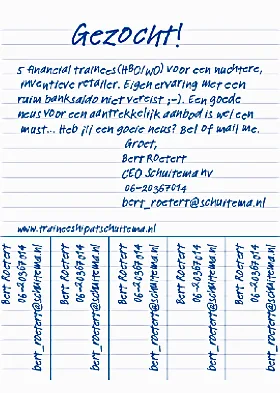 Gezocht!
5 financial trainees (HBO/WO) voor een nuchtere,
inventieve retailer. Eigen ervaring met een
ruim banksaldo niet vereist ;-). Een goede
neus voor een aantrekkelijk aanbod is wel een
must... Heb jij een goeie neus? Bel of mail me.
Groet,
Bert Roetert
CEO Schuitema nv
06-20367014
bert_roetert@schuitema.nl
www.traineeshipatschuitema.nl
Bert Roetert
06-20367014
bert_roetert@schuitema.nl
Bert Roetert
06-20367014
bert_roetert@schuitema.nl
Bert Roetert
06-20367014
bert_roetert@schuitema.nl
Bert Roetert
06-20367014
bert_roetert@schuitema.nl
Bert Roetert
06-20367014
bert_roetert@schuitema.nl